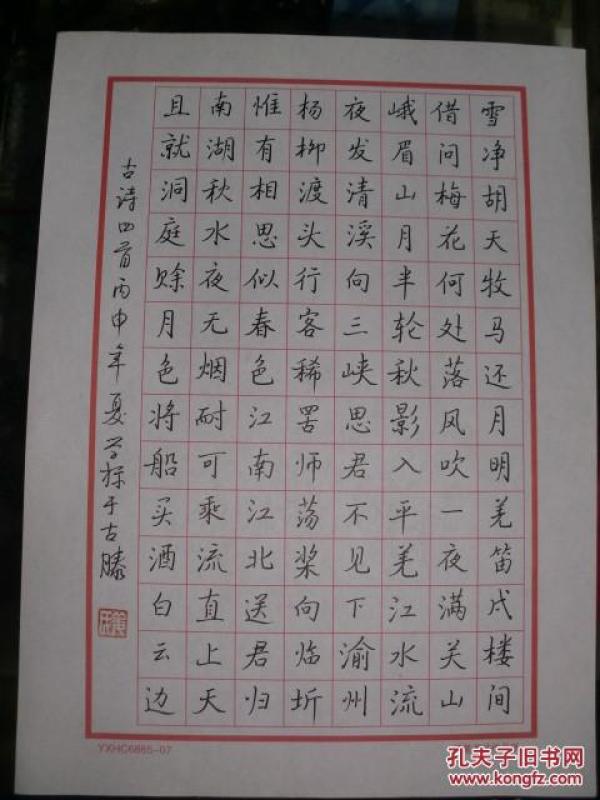 雪净胡天牧马还月明羌笛戍楼间
借问梅花何处落风吹一夜满关山
峨眉山月半轮秋影入平羌江水流
夜发清溪向三峡思君不见下渝州
杨柳渡头行客稀罟师荡桨向临圻
惟有相思似春色江南江北送君归
南湖秋水夜无烟耐可乘流直上天
且就洞庭赊月色将船买酒白云边
古诗四首丙申年夏学标于古滕
YXHC6885-07
孔夫子旧书网
www.kongfz.com